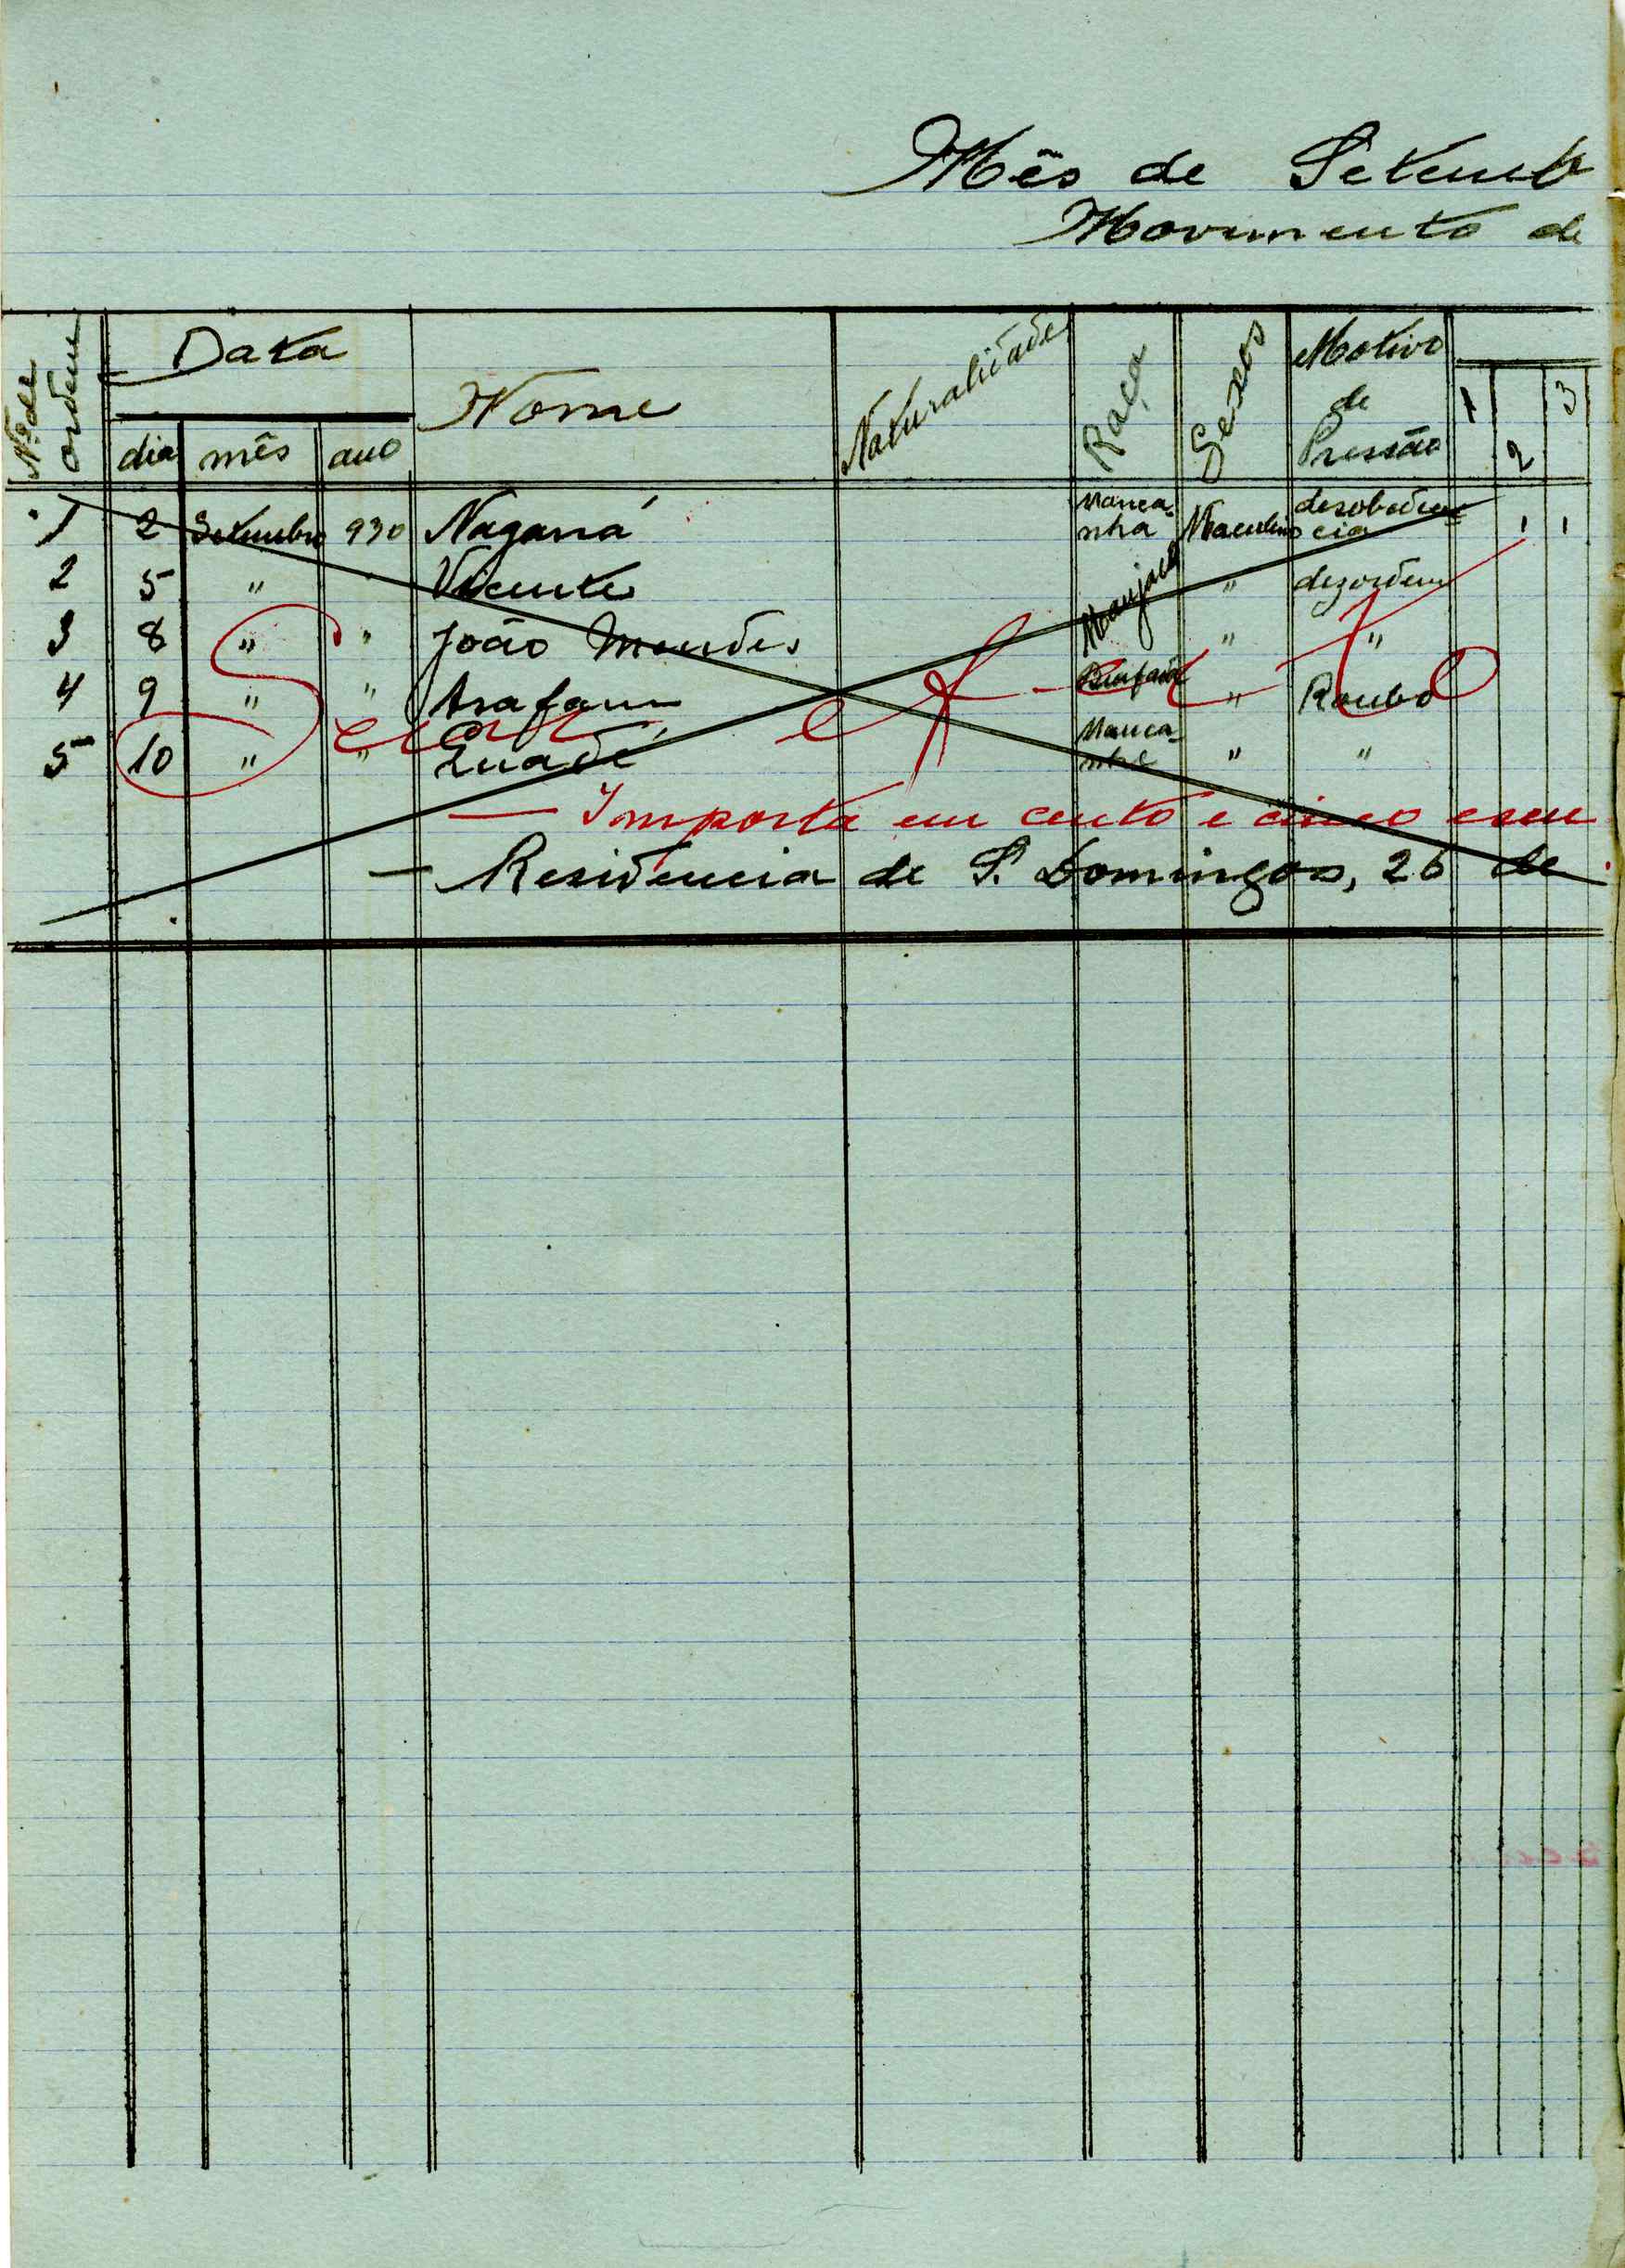 Mês de Setemb
Movimento de
Nº de ordem Data Nome Naturalidade Raça Sexos Motivo de Pressão 1 2 3
dia mês ano
1 2 Setembro 930 Naganá Manca-nha Masculino desobedien-cia 1 1
2 5 " Vicente Manjaco " dezordem
3 8 " " João Mendes " "
4 9 " " Arafam " Roubo
5 10 " " Quadé Manca-nha " "
Sem efeito
— Importa em cento e cinco escu
— Residencia de S. Domingos, 26 de